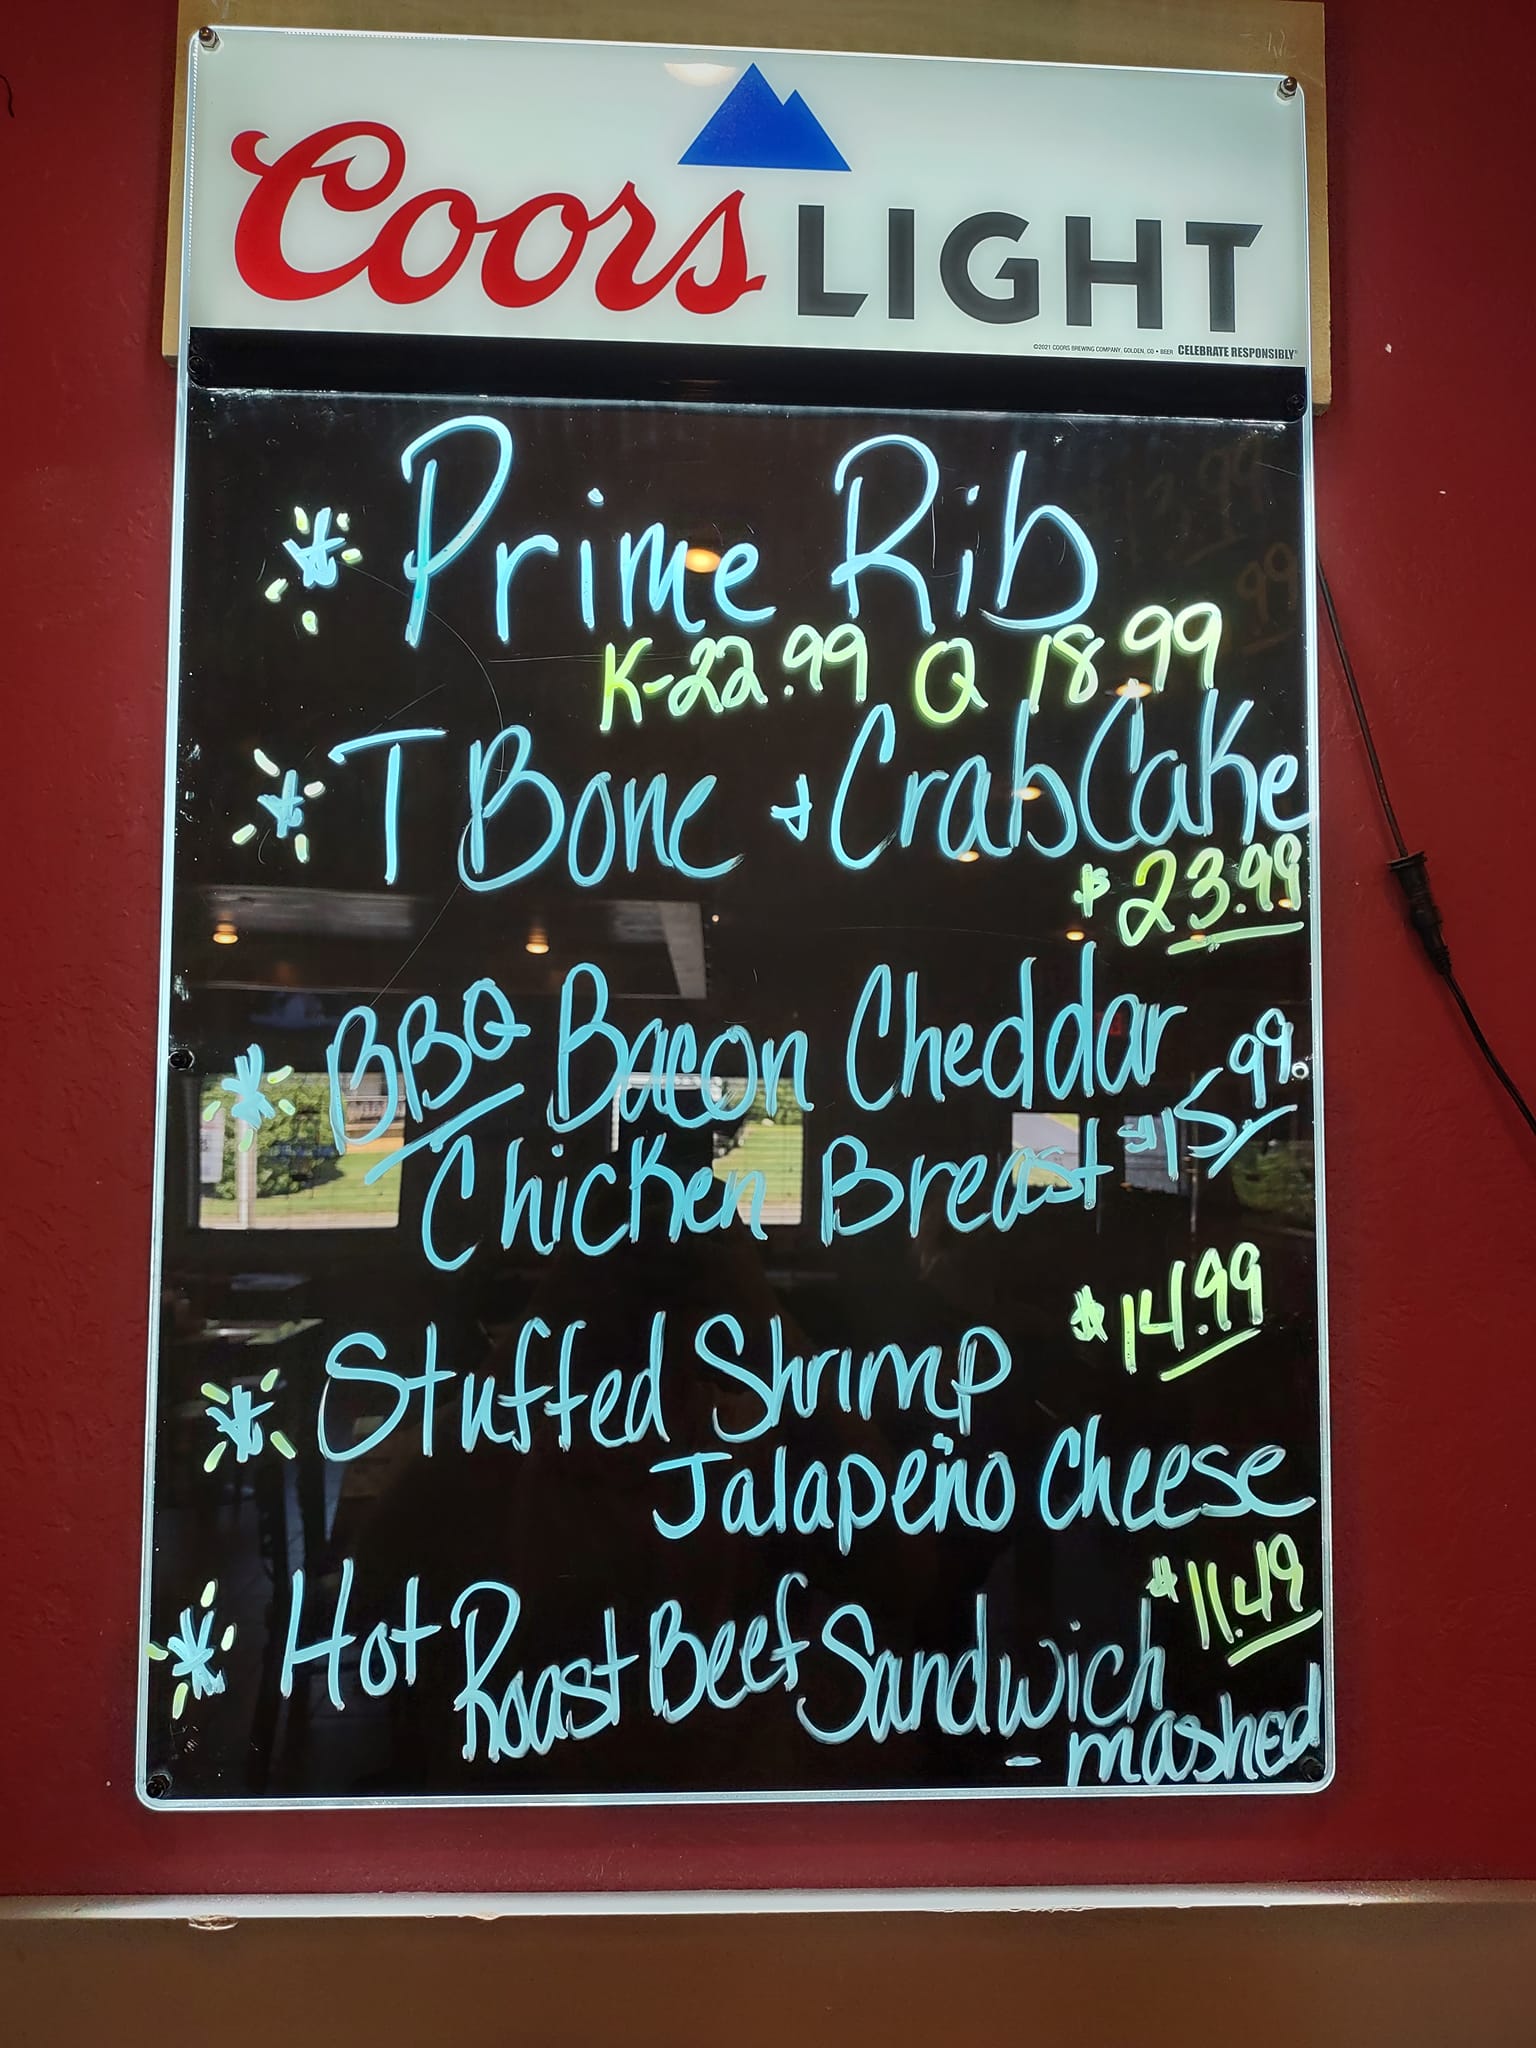 Coors LIGHT
©2021 COORS BREWING COMPANY, GOLDEN, CO • BEER CELEBRATE RESPONSIBLY®
Prime Rib
K-22.99 Q 18.99
T Bone + Crab Cake
$23.99
BBQ Bacon Cheddar
Chicken Breast $15.99
$14.99
Stuffed Shrimp
Jalapeño Cheese
$11.49
Hot Roast Beef Sandwich
- mashed